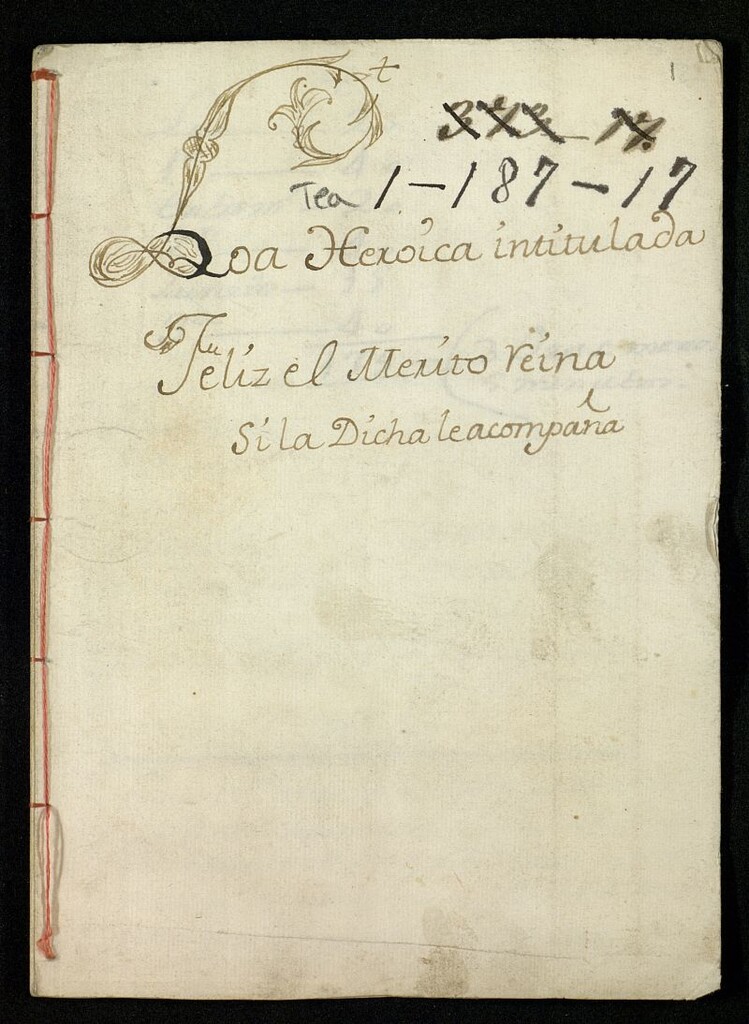 1
Tea 1-187-17
Loa Heroica intitulada
Feliz el Merito reina
Si la Dicha le acompaña